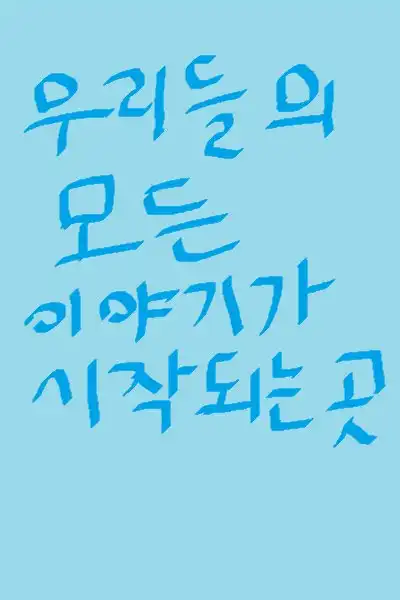 우리들의
모든
이야기가
시작되는 곳